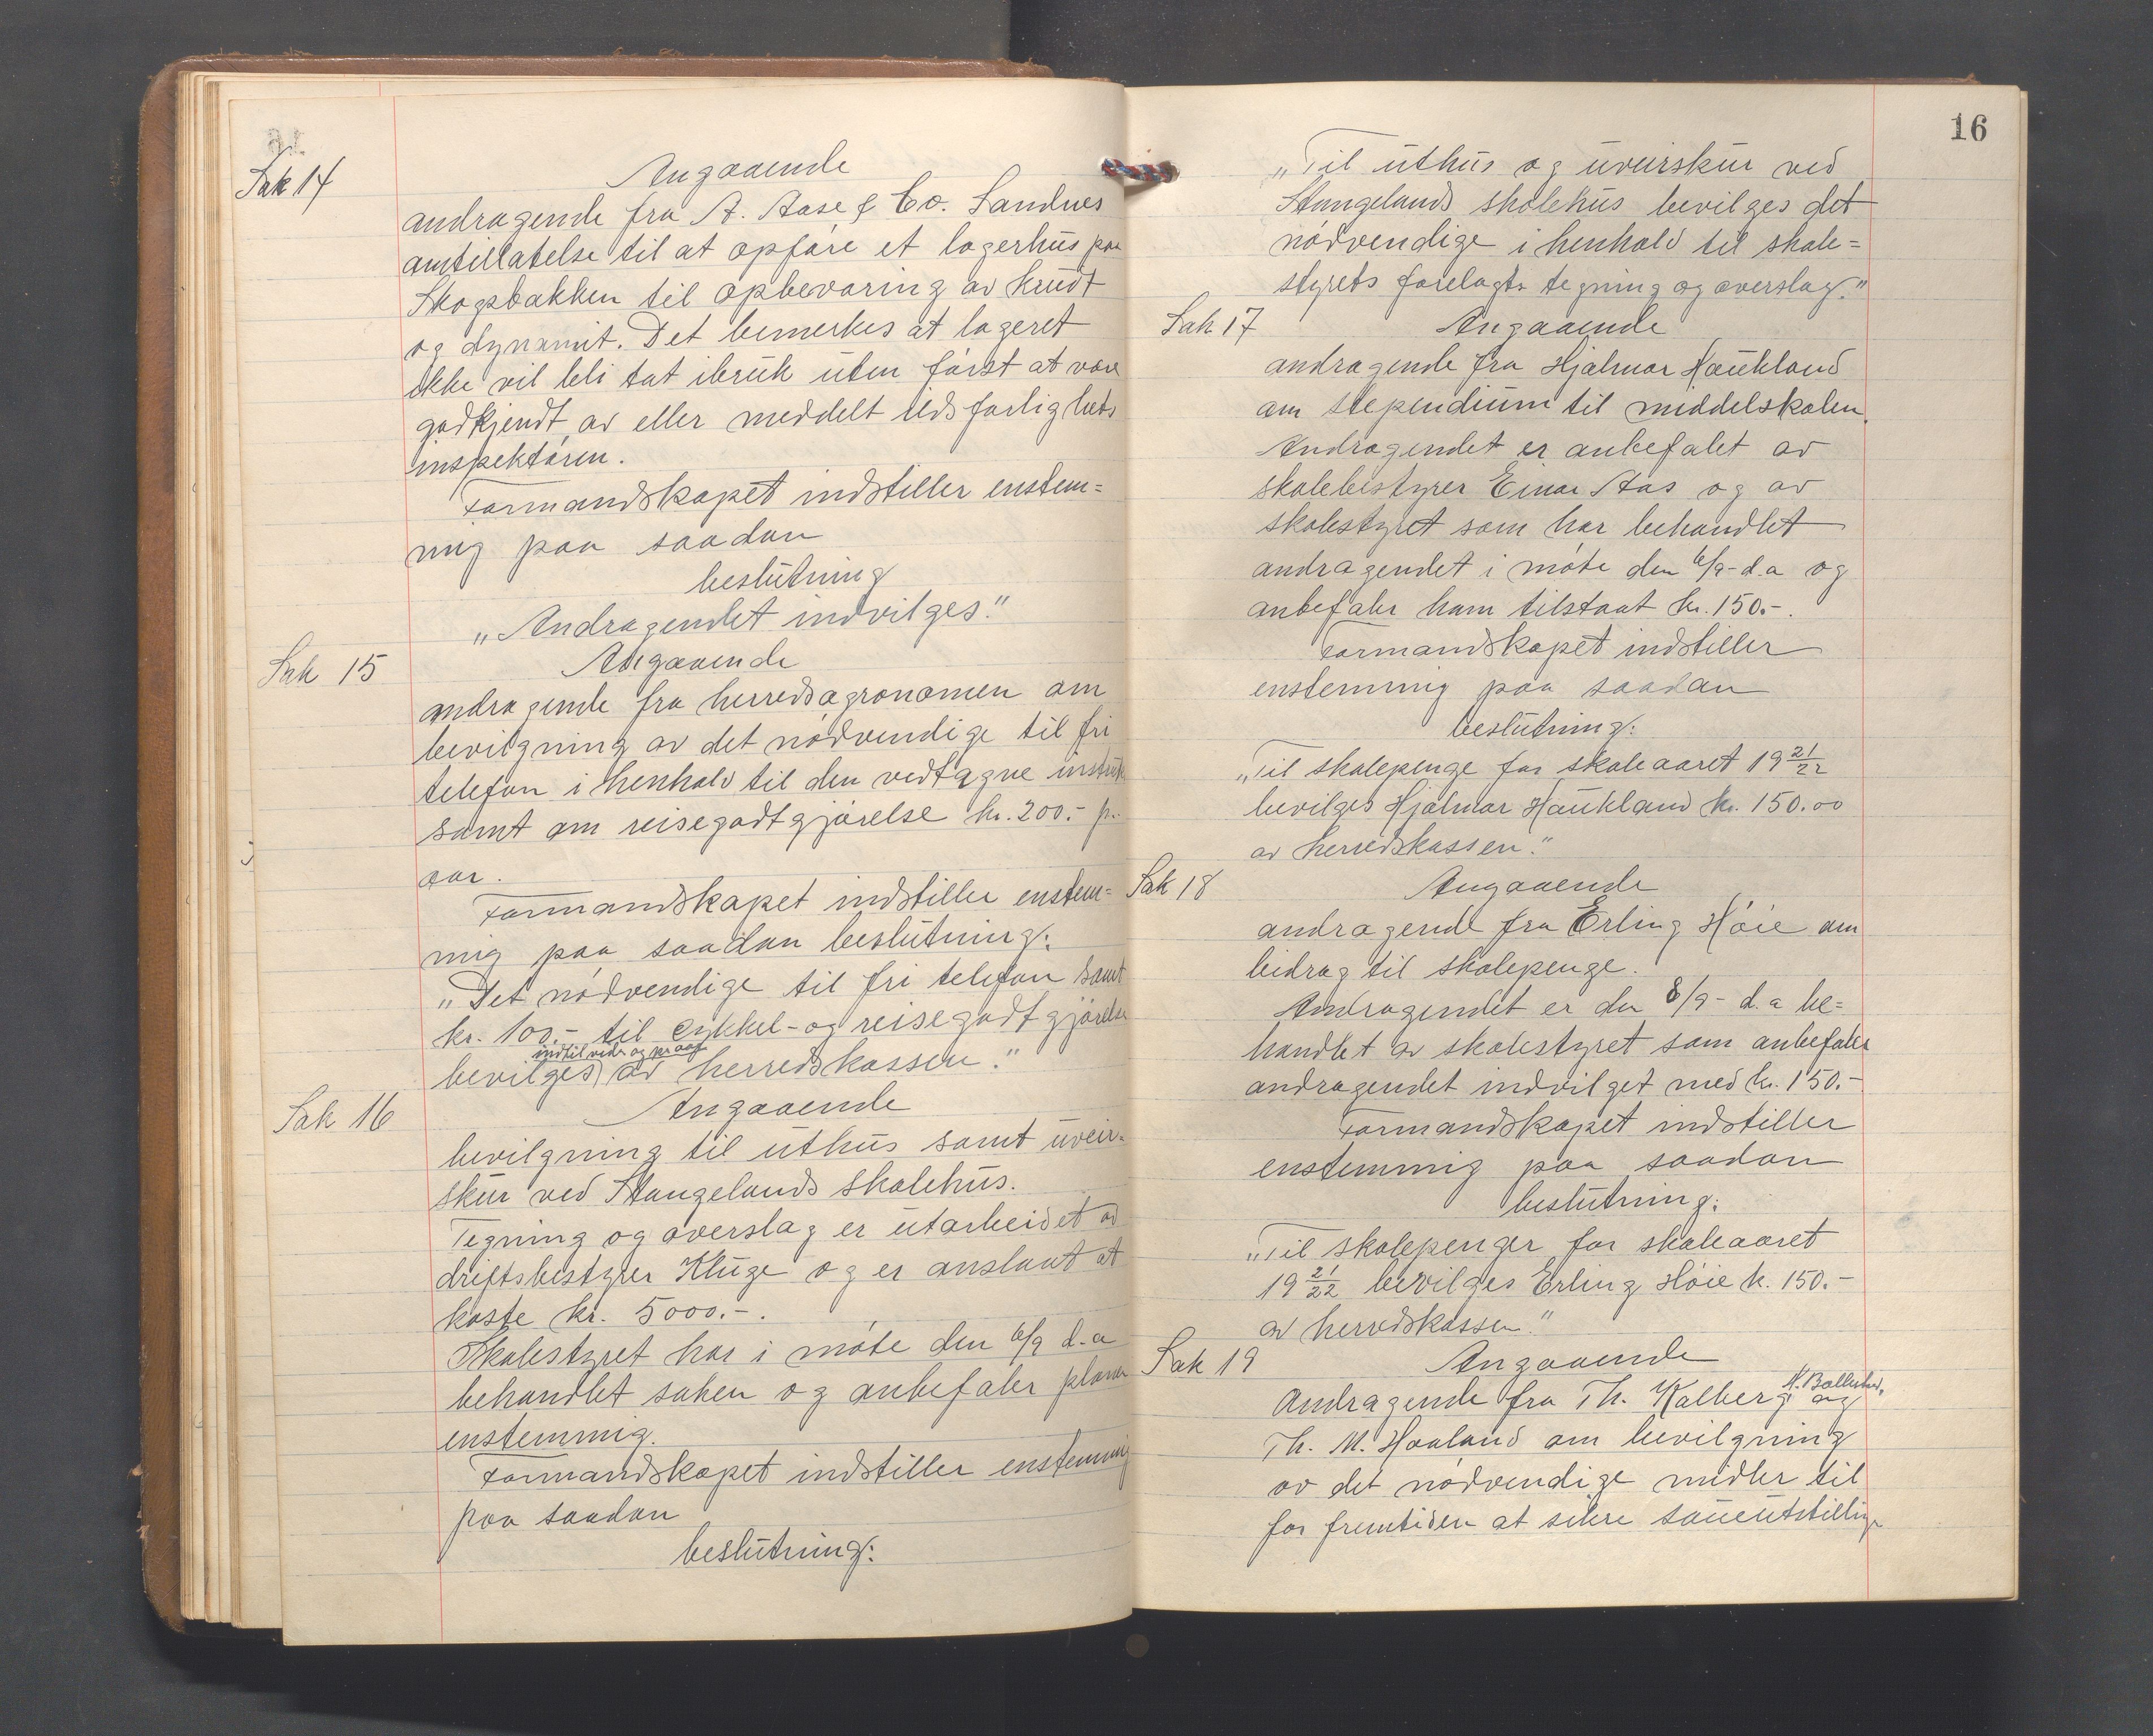 Sak 14
Angaaende
andragende fra A. Aase & Co. Sandnes
om tillatelse til at opføre et lagerhus paa
Skogsbakken til opbevaring av krudt
og dynamit. Det bemerkes at lageret
ikke vil bli tat ibruk uten først at være
godkjendt av eller meddelt ildsfarlighets
inspektøren.
Formandskapet indstiller enstem=
mig paa saadan
beslutning
„Andragendet indvilges."
Sak 15
Angaaende
andragende fra herredsagronomen om
bevilgning av det nødvendige til fri
telefon i henhold til den vedtagne instruk
samt om reisegodtgjørelse kr. 200.- pr.
aar.
Formandskapet indstiller enstem=
mig paa saadan beslutning:
„Det nødvendige til fri telefon samt
kr. 100.- til cykkel- og reisegodtgjørelse
indtil videre og pr aar
bevilges av herredskassen."
Sak 16
Angaaende
bevilgning til uthus samt uveir-
skur ved Stangelands skolehus.
Tegning og overslag er utarbeidet av
driftsbestyrer Kluge og er anslaat at
koste kr. 5000.-.
Skolestyret har i møte den 6/9 d.a
behandlet saken og anbefaler planen
enstemmig.
Formandskapet indstiller enstemmig
paa saadan
beslutning:
16
„Til uthus og uveirskur ved
Stangelands skolehus bevilges det
nødvendige i henhold til skole=
styrets forelagte tegning og overslag."
Sak 17
Angaaende
andragende fra Hjalmar Haukland
om stependium til middelskolen.
Andragendet er anbefalet av
skolebestyrer Einar Aas og av
skolestyret som har behandlet
andragendet i møte den 6/9- d.a og
anbefaler ham tilstaat kr. 150.-.
Formandskapet indstiller
enstemmig paa saadan
beslutning:
„Til skolepenge for skoleaaret 19 21/22
bevilges Hjalmar Haukland kr. 150.00
av herredskassen."
Sak 18
Angaaende
andragende fra Erling Høie om
bidrag til skolepenge.
Andragendet er den 8/9- d.a be=
handlet av skolestyret som anbefaler
andragendet indvilget med kr. 150.-
Formandskapet indstiller
enstemmig paa saadan
beslutning:
„Til skolepenger for skoleaaret
19 21/22 bevilges Erling Høie k. 150.-
av herredskassen."
Sak 19
Angaaende
Andragende fra Th. Kalberg og
Th. M. Haaland om bevilgning
av det nødvendige midler til
for fremtiden at sikre saueutstilling